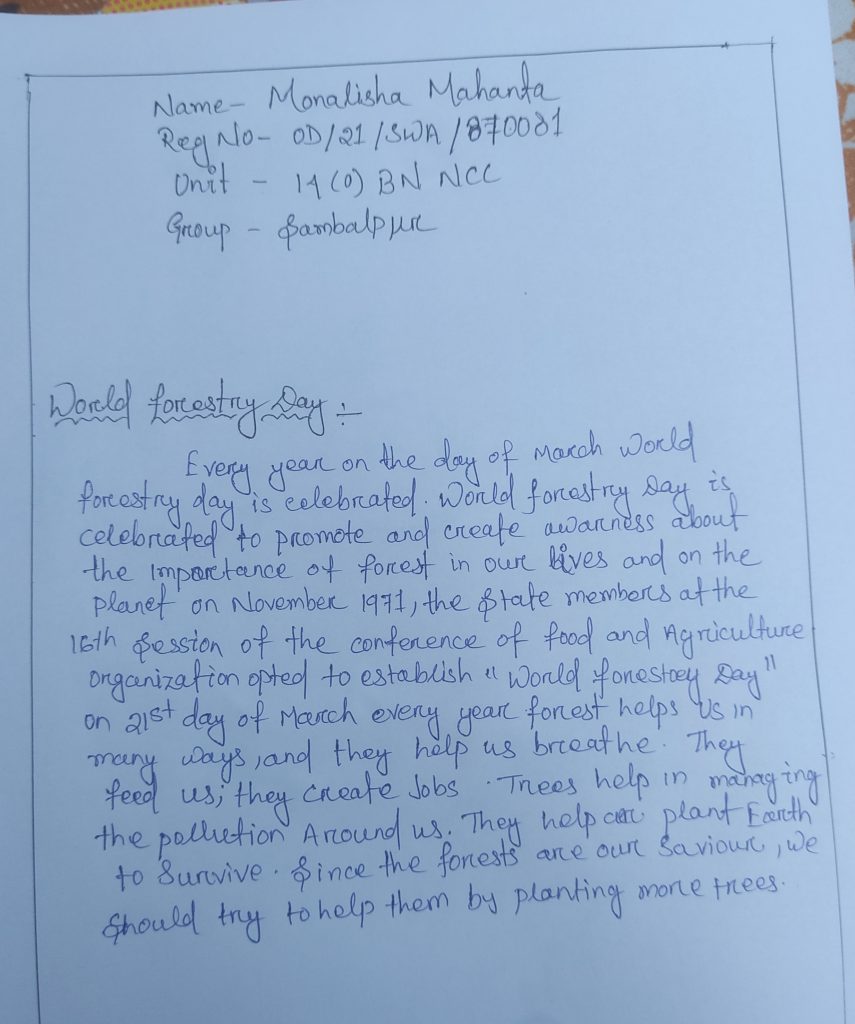 Name- Monalisha Mahanta
Reg No- OD/21/SWA/870081
Unit - 14 (O) BN NCC
Group - Sambalpur
World forestry Day :-
Every year on the day of March World
forestry day is celebrated. World forestry Day is
celebrated to promote and create awarness about
the Importance of forest in our lives and on the
planet on November 1971, the State members at the
16th Session of the conference of food and Agriculture
Organization opted to establish "World forestoey Day"
on 21st day of March every year forest helps us in
many ways, and they help us breathe. They
feed us; they create Jobs. Trees help in managing
the pollution Around us. They help our plant Earth
to Survive. Since the forests are our Saviour, We
Should try to help them by planting more trees.